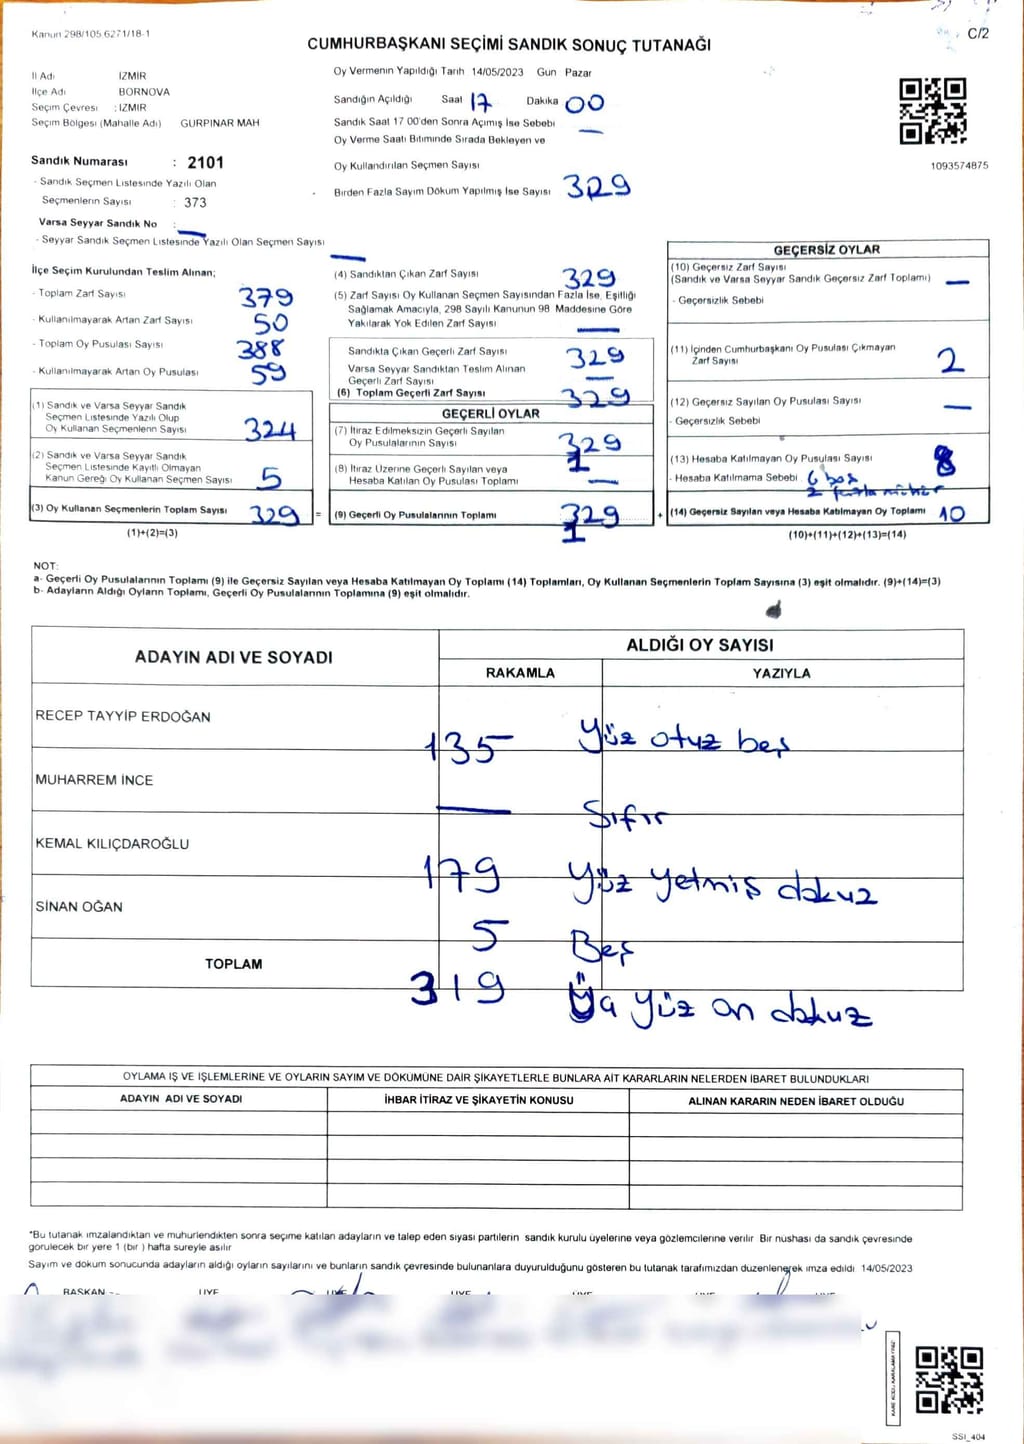 Kanun 298/105 6271/18-1
C/2
CUMHURBAŞKANI SEÇİMİ SANDIK SONUÇ TUTANAĞI
İl Adı İZMİR
İlçe Adı BORNOVA
Seçim Çevresi : İZMİR
Seçim Bölgesi (Mahalle Adı) GÜRPINAR MAH
Sandık Numarası : 2101
- Sandık Seçmen Listesinde Yazılı Olan
Seçmenlerin Sayısı : 373
Varsa Seyyar Sandık No : —
- Seyyar Sandık Seçmen Listesinde Yazılı Olan Seçmen Sayısı —
Oy Vermenin Yapıldığı Tarih 14/05/2023 Gün Pazar
Sandığın Açıldığı Saat 17 Dakika 00
Sandık Saat 17 00'den Sonra Açılmış İse Sebebi —
Oy Verme Saati Bitiminde Sırada Bekleyen ve
Oy Kullandırılan Seçmen Sayısı
Birden Fazla Sayım Döküm Yapılmış İse Sayısı 329
1093574875
İlçe Seçim Kurulundan Teslim Alınan;
- Toplam Zarf Sayısı 379
- Kullanılmayarak Artan Zarf Sayısı 50
- Toplam Oy Pusulası Sayısı 388
- Kullanılmayarak Artan Oy Pusulası 59
(1) Sandık ve Varsa Seyyar Sandık
Seçmen Listesinde Yazılı Olup
Oy Kullanan Seçmenlerin Sayısı 324
(2) Sandık ve Varsa Seyyar Sandık
Seçmen Listesinde Kayıtlı Olmayan
Kanun Gereği Oy Kullanan Seçmen Sayısı 5
(3) Oy Kullanan Seçmenlerin Toplam Sayısı 329 =
(1)+(2)=(3)
(4) Sandıktan Çıkan Zarf Sayısı 329
(5) Zarf Sayısı Oy Kullanan Seçmen Sayısından Fazla İse, Eşitliği
Sağlamak Amacıyla, 298 Sayılı Kanunun 98 Maddesine Göre
Yakılarak Yok Edilen Zarf Sayısı —
Sandıkta Çıkan Geçerli Zarf Sayısı 329
Varsa Seyyar Sandıktan Teslim Alınan
Geçerli Zarf Sayısı —
(6) Toplam Geçerli Zarf Sayısı 329
GEÇERLİ OYLAR
(7) İtiraz Edilmeksizin Geçerli Sayılan
Oy Pusulalarının Sayısı 329
1
(8) İtiraz Üzerine Geçerli Sayılan veya
Hesaba Katılan Oy Pusulası Toplamı —
(9) Geçerli Oy Pusulalarının Toplamı 329 +
1
GEÇERSİZ OYLAR
(10) Geçersiz Zarf Sayısı
(Sandık ve Varsa Seyyar Sandık Geçersiz Zarf Toplamı) —
- Geçersizlik Sebebi
(11) İçinden Cumhurbaşkanı Oy Pusulası Çıkmayan
Zarf Sayısı 2
(12) Geçersiz Sayılan Oy Pusulası Sayısı —
- Geçersizlik Sebebi
(13) Hesaba Katılmayan Oy Pusulası Sayısı 8
- Hesaba Katılmama Sebebi 6 boş
2 fazla mühür
(14) Geçersiz Sayılan veya Hesaba Katılmayan Oy Toplamı 10
(10)+(11)+(12)+(13)=(14)
NOT:
a- Geçerli Oy Pusulalarının Toplamı (9) ile Geçersiz Sayılan veya Hesaba Katılmayan Oy Toplamı (14) Toplamları, Oy Kullanan Seçmenlerin Toplam Sayısına (3) eşit olmalıdır. (9)+(14)=(3)
b- Adayların Aldığı Oyların Toplamı, Geçerli Oy Pusulalarının Toplamına (9) eşit olmalıdır.
ADAYIN ADI VE SOYADI
ALDIĞI OY SAYISI
RAKAMLA YAZIYLA
RECEP TAYYİP ERDOĞAN 135 Yüz otuz beş
MUHARREM İNCE — Sıfır
KEMAL KILIÇDAROĞLU 179 Yüz yetmiş dokuz
SİNAN OĞAN 5 Beş
TOPLAM 319 Üç yüz on dokuz
OYLAMA İŞ VE İŞLEMLERİNE VE OYLARIN SAYIM VE DÖKÜMÜNE DAİR ŞİKAYETLERLE BUNLARA AİT KARARLARIN NELERDEN İBARET BULUNDUKLARI
ADAYIN ADI VE SOYADI İHBAR İTİRAZ VE ŞİKAYETİN KONUSU ALINAN KARARIN NEDEN İBARET OLDUĞU
*Bu tutanak imzalandıktan ve mühürlendikten sonra seçime katılan adayların ve talep eden siyasi partilerin sandık kurulu üyelerine veya gözlemcilerine verilir Bir nüshası da sandık çevresinde
görülecek bir yere 1 (bir ) hafta süreyle asılır
Sayım ve döküm sonucunda adayların aldığı oyların sayılarını ve bunların sandık çevresinde bulunanlara duyurulduğunu gösteren bu tutanak tarafımızdan düzenlenerek imza edildi 14/05/2023
BAŞKAN ÜYE ÜYE ÜYE ÜYE
SSİ_404